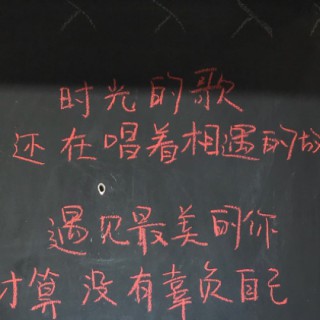 时光的歌
还在唱着相遇的
遇见最美的你
才算没有辜负自己